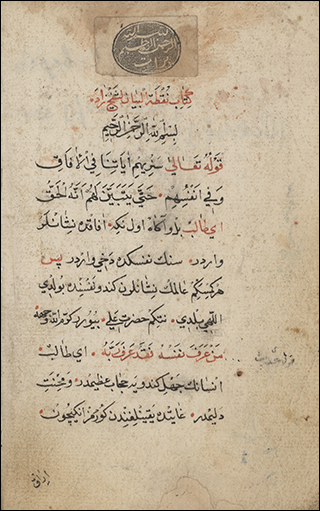 كتاب نقطة البيان لشيخ زاده
بسم الله الرحمن الرحيم
قوله تعالى سنريهم اياتنا في الافاق
وفي انفسهم حتى يتبين لهم انه الحق
اى طالب بل واكاه اول كه افاقده نشانلر
واردر سنك نفسكده دخي واردر پس
هر كيمكم عالمك نشانلرن كندو نفسنده بولدي
اللهي بلدي نتكم حضرت علي بيورر كرم الله وجهه
من عرف نفسه فقد عرف ربه اى طالب
انسانك جهل كندويه حجاب عظيمدر ومحنت
غايتده يقينلغندن كورمز انكيچون